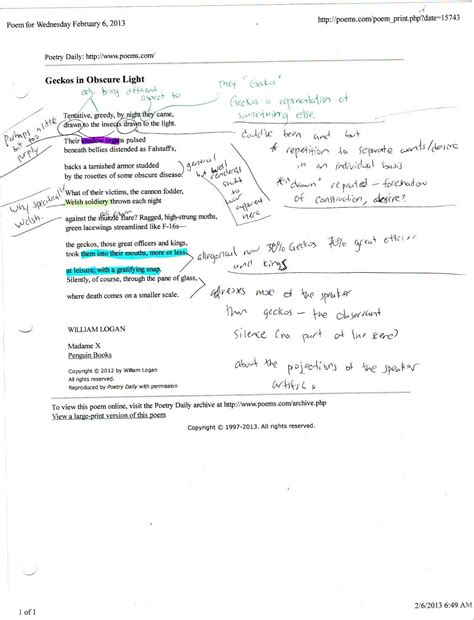 Poem for Wednesday February 6, 2013
http://poems.com/poem_print.php?date=15743
Poetry Daily: http://www.poems.com/
Geckos in Obscure Light
adj. being different
aspect to
they "Geckos"
Geckos a representation of
something else.
Tentative, greedy, by night they came,
drawn to the insects drawn to the light.
Perhaps
bit too little
purply
Their shadow organs pulsed
beneath bellies distended as Falstaff's,
could've been and but
* repetition to separate wants/desire
in an individual basis
backs a tarnished armor studded
by the rosettes of some obscure disease
general
but
shift
to
war
apparent
here
* "drawn" repeated - foreshadow
of construction, desire?
Why specifically
Welsh.
What of their victims, the cannon fodder,
Welsh soldiery thrown each night
against the muzzle flare? Ragged, high-strung moths,
green lacewings streamlined like F-16s—
the geckos, those great officers and kings,
took them into their mouths, more or less,
at leisure, with a gratifying snap.
Silently, of course, through the pane of glass,
allegorical now 30% Geckos 70% great officer
and kings
where death comes on a smaller scale.
addresses more of the speaker
than geckos - the observant
silence (no part of the scene)
about the projections of the speaker
WILLIAM LOGAN
Madame X
Penguin Books
Copyright © 2012 by William Logan
All rights reserved.
Reproduced by Poetry Daily with permission
To view this poem online, visit the Poetry Daily archive at http://www.poems.com/archive.php
View a large-print version of this poem
Copyright © 1997-2013. All rights reserved.
2/6/2013 6:49 AM
1 of 1